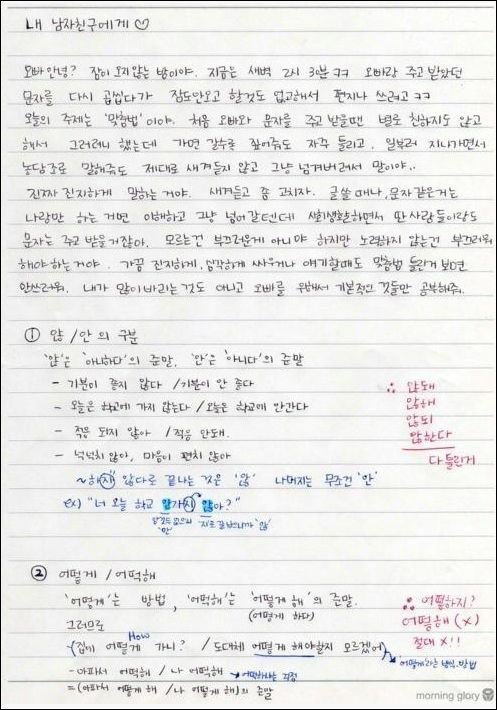 내 남자친구에게 ♡
오빠 안녕? 잠이 오지 않는 밤이야. 지금은 새벽 2시 30분 ㅋㅋ 오빠랑 주고 받았던
문자를 다시 곱씹다가 잠도안오고 할것도 없고해서 편지나 쓰려고 ㅋㅋ
오늘의 주제는 '맞춤법' 이야. 처음 오빠와 문자를 주고 받을땐 별로 친하지도 않고
해서 그러려니 했는데 가면 갈수록 짚어줘도 자주 틀리고, 일부러 지나가면서
농담조로 말해줘도 제대로 새겨듣지 않고 그냥 넘겨버려서 말이야..
진짜 진지하게 말하는 거야. 새겨듣고 좀 고치자. 글쓸 때나, 문자같은거는
나랑만 하는 거면 이해하고 그냥 넘어갈텐데 사회생활하면서 딴사람들이랑도
문자는 주고 받을거잖아. 모르는건 부끄러운게 아니야 하지만 노력하지 않는건 부끄러워
해야 하는거야. 가끔 진지하게, 심각하게 싸우거나 얘기할때도 맞춤법 틀린거 보면
안쓰러워. 내가 많이 바라는 것도 아니고 오빠를 위해서 기본적인 것들만 공부해줘.
① 않 / 안 의 구분
'않'은 '아니하다'의 준말, '안'은 '아니다'의 준말
- 기분이 좋지 않다 / 기분이 안 좋다
- 오늘은 학교에 가지 않는다 / 오늘은 학교에 안간다
- 적응 되지 않아 / 적응 안돼.
- 넉넉치 않아, 마음이 편치 않아
∴ 않돼
않해
않되
않한다
다 틀린거
~하지 않다로 끝나는 것은 '않' 나머지는 무조건 '안'
ex) "너 오늘 학교 안가지 않아?"
'안'
'지'로 끝났으니까 '않'
② 어떻게 / 어떡해
'어떻게'는 방법, '어떡해'는 '어떻게 해'의 준말.
(어떻게 하다)
그러므로
How
(집에 어떻게 가니? / 도대체 어떻게 해야할지 모르겠어)
어떻게라는 방식, 방법
- 아파서 어떡해 / 나 어떡해
= (아파서 어떻게 해 / 나 어떻게 해)의 준말
∴ 어떻하지?
어떻해 (x)
절대 x!!
morning glory